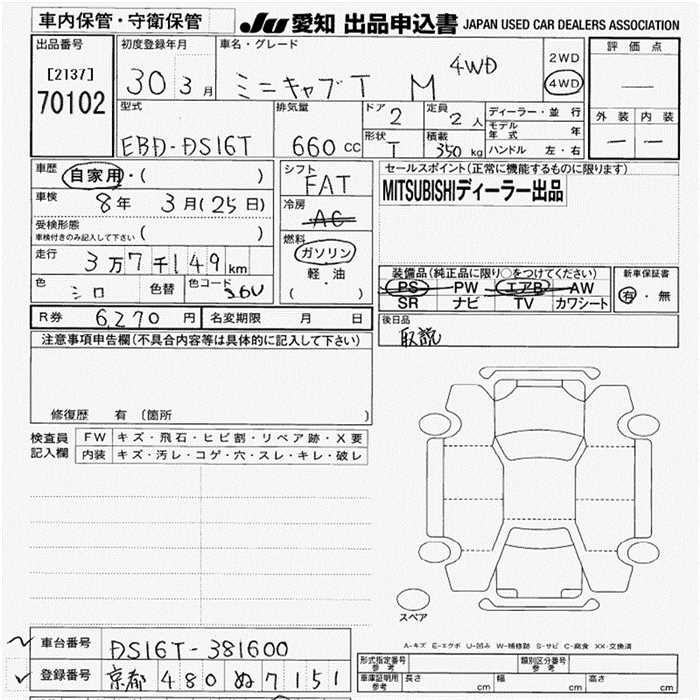 車内保管・守衛保管
JU 愛知 出品申込書 JAPAN USED CAR DEALERS ASSOCIATION
出品番号
[2137]
70102
初度登録年月
30 3月
車名・グレード
ミニキャブT M 4WD
2WD
4WD
評価点
—
外装 内装
— —
型式
EBD-DS16T
排気量
660 CC
ドア
2
定員
2人
形状
T
積載
350 kg
ディーラー・並行
モデル年式 年
ハンドル 左・右
車歴
自家用・( )
車検
8年 3月(25日)
受検形態
車検付きのみ記入して下さい ( )
走行
3万7千149km
色
シロ
色替
色コード
36U
シフト
FAT
冷房
AC
燃料
ガソリン
軽油
( )
セールスポイント(正常に機能するものに限ります)
MITSUBISHIディーラー出品
装備品(純正品に限り○をつけてください)
PS PW エアB AW
SR ナビ TV カワシート
新車保証書
有・無
R券 6,270円
名変期限 月 日
後日品
取説
注意事項申告欄(不具合内容等は具体的に記入して下さい)
修復歴 有 〔箇所 〕
検査員記入欄
FW キズ・飛石・ヒビ割・リペア跡・X要
内装 キズ・汚レ・コゲ・穴・スレ・キレ・破レ
スペア
A-キズ E-エクボ U-凹み W-補修跡 S-サビ C-腐食 XX-交換済
車台番号
DS16T-381600
登録番号
京都 480 ぬ 7151
形式指定番号
参考
類別区分番号
参考
車庫証明用
参考
長さ cm
幅 cm
高さ cm